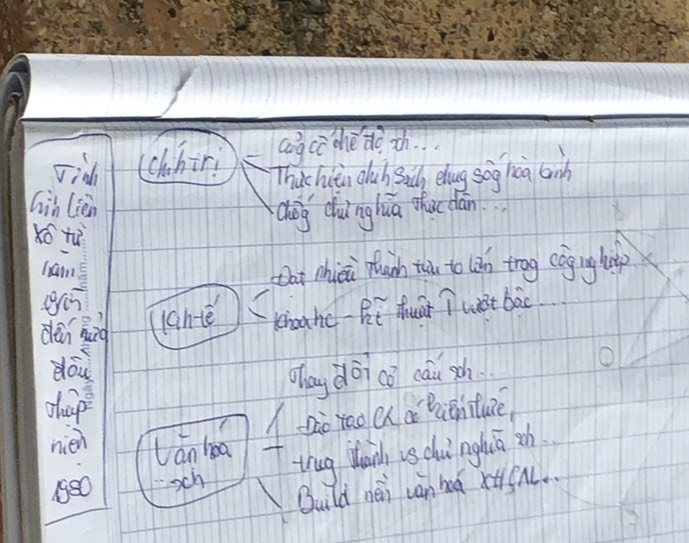 Tình
hình liên
xô từ
năm
1950
đến nửa
đầu
thập
niên
1980
Chính trị
- Củg cố chế độ xh...
- Thực hiện chính sách chug sốg hòa bình
- Chốg chủ nghĩa thực dân...
Kinh tế
- Đạt nhiều thành tựu to lớn trog côg nghiệp
- Khoa hc - kĩ thuật ↑ vượt bậc...
Văn hoá
xh
Thay đổi cơ cấu xh...
- Đào tạo
trug thành vs chủ nghĩa xh...
Build nền văn hoá XHCN...